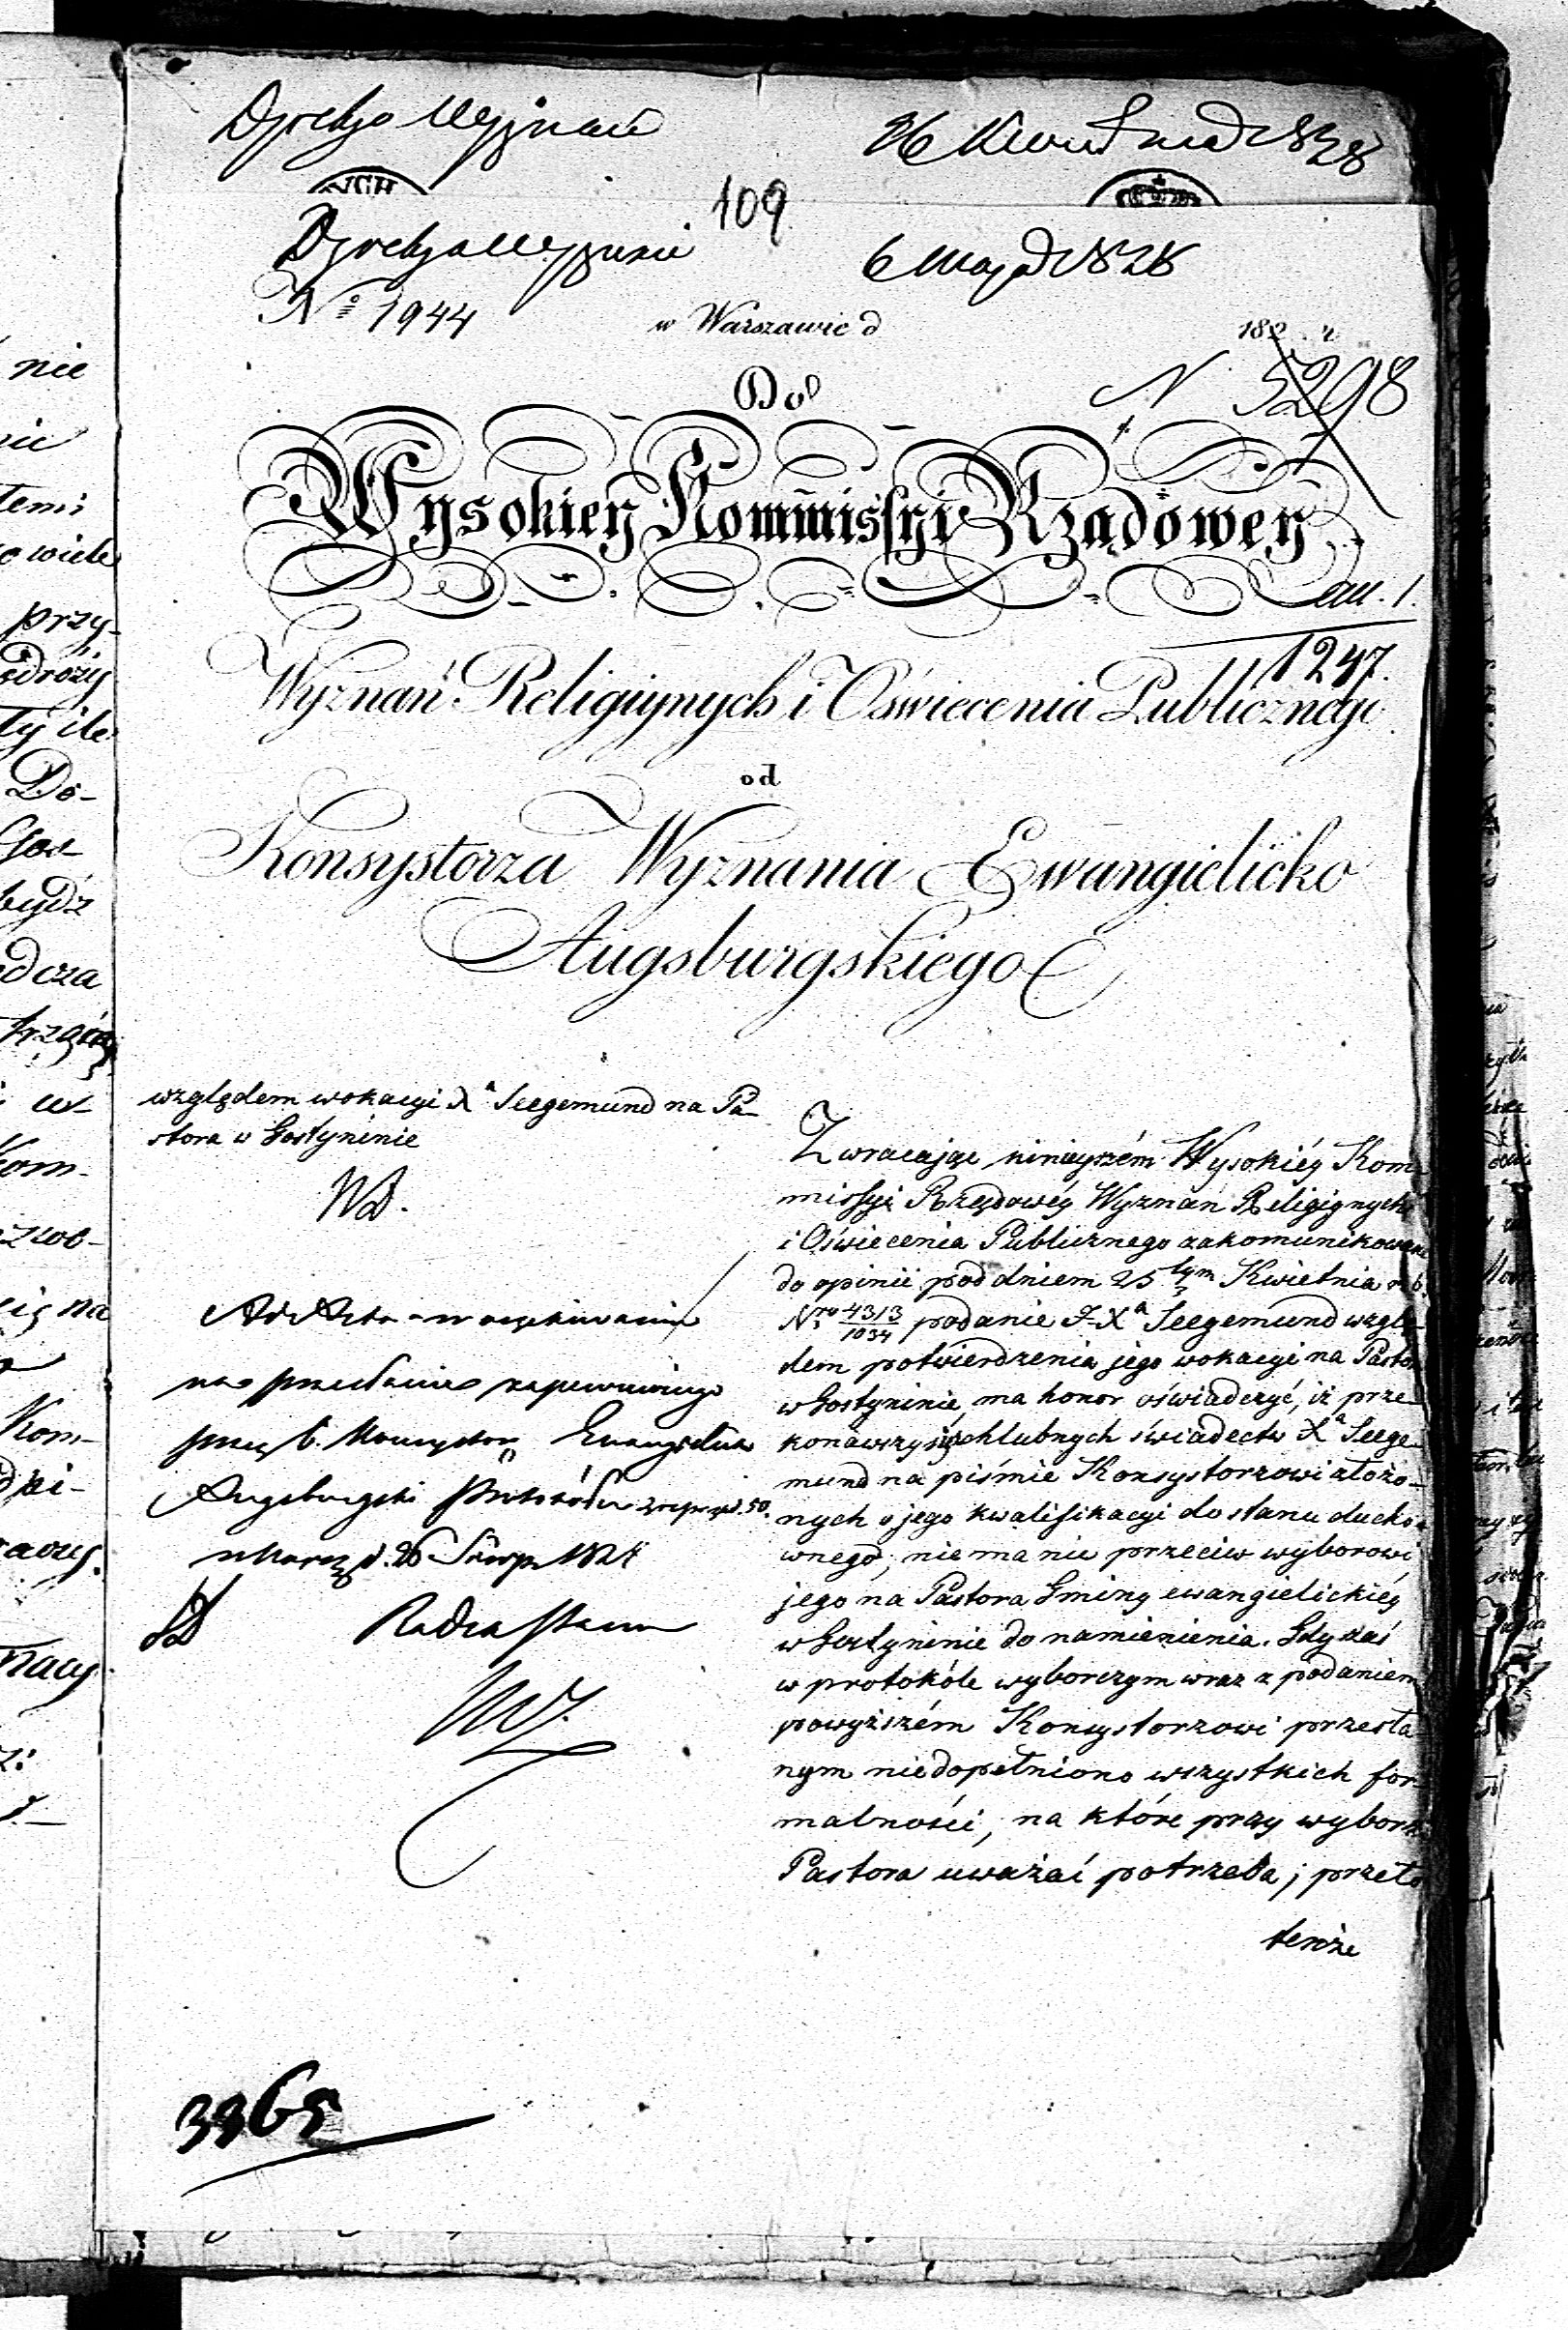 Dyrekcya Wyznań
26 Kwietnia 1828
109
Dyrekcya Wyznań
6 Maja 1828
No 1944
w Warszawie d
182
N 5298
Do
Wysokiey Kommissyi Rządowey
all. 1.
1247.
Wyznań Religiynych i Oświecenia Publicznego
od
Konsystorza Wyznania Ewangielicko
Augsburgskiego
względem wokacyi Xa Seegemund na Pa-
stora w Gostyninie
Ad Acta w oczekiwaniu
na przesłanie
przez Ewangelicko
Augsburgski
1828
Radca Stanu
3965
Zwracając ninieyszém Wysokiéy Kom-
missyi Rządowéy Wyznań Religiynych
i Oświecenia Publicznego zakomunikowane
do opinii pod dniem 25tym Kwietnia r. b.
Nro 4313/1034 podanie J. Xa Seegemund wzglę-
dem potwierdzenia jego wokacyi na Pastora
w Gostyninie, ma honor oświadczyć, iż prze-
konawszy się z chlubnych świadectw Xa Seege-
mund na piśmie Konsystorzowi złożo-
nych o jego kwalifikacyi do stanu ducho-
wnego, nie ma nic przeciw wyborowi
jego na Pastora Gminy ewangielickiéy
w Gostyninie do namienienia. Gdy zaś
w protokóle wyborczym wraz z podaniem
powyższém Konsystorzowi przesła-
nym niedopełniono wszystkich for-
malności, na które przy wyborze
Pastora uważać potrzeba; przeto
tenże